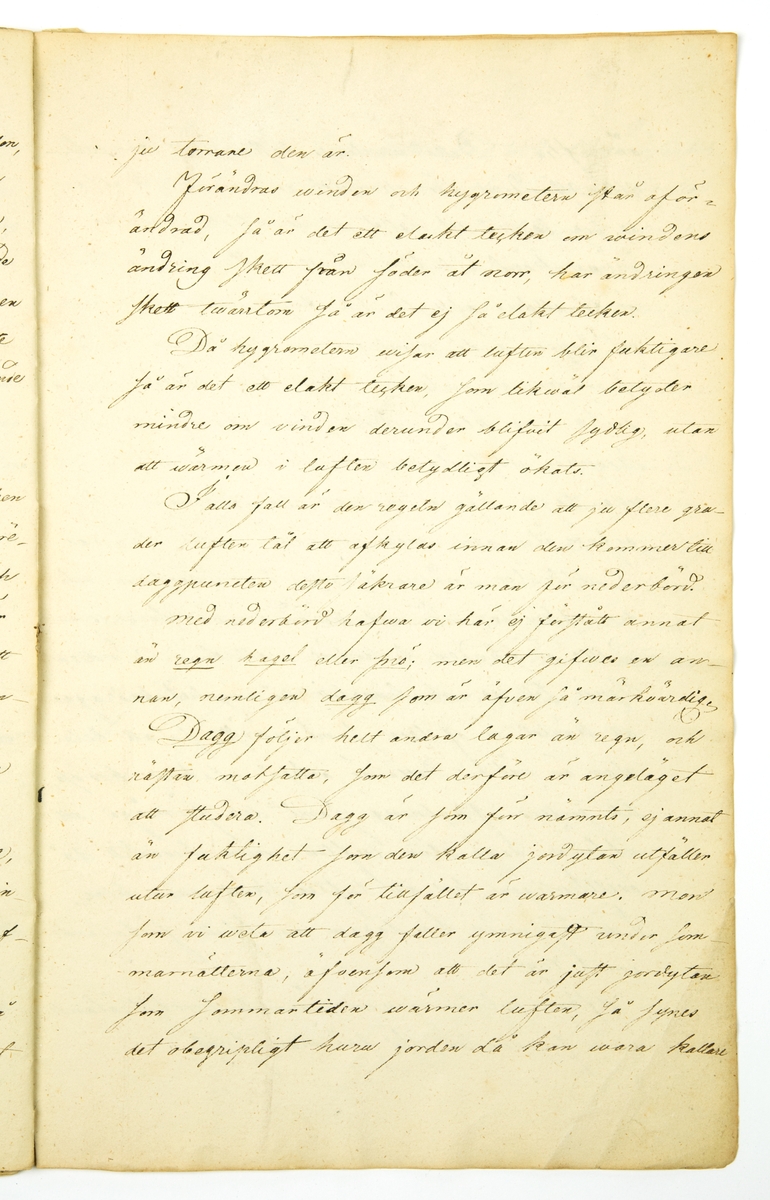 ju torrare den är.
Förändras winden och hygrometern står oför=
ändrad, så är det ett elakt tecken om windens
ändring skett från söder åt norr, har ändringen
skett twärtom så är det ej så elakt tecken.
Då hygrometern wisar att luften blir fuktigare
så är det ett elakt tecken, som likwäl betyder
mindre om vinden derunder blifvit sydlig, utan
att wärmen i luften betydligt ökats.
I alla fall är den regeln gällande att ju flere gra-
der luften tål att afkylas innan den kommer till
daggpuncten desto säkrare är man för nederbörd.
Med nederbörd hafwa vi här ej förstått annat
än regn hagel eller snö; men det gifwes en an-
nan, nemligen dagg som är äfven så märkvärdig.
Dagg följer helt andra lagar än regn, och
nästan motsatta, som det derföre är angeläget
att studera. Dagg är som för nämnts, ej annat
än fuktighet som den kalla jordytan utfäller
utur luften, som för tillfället är warmare. Men
som vi weta att dagg faller ymnigast under som-
marnätterna, äfvensom att det är just jordytan
som sommartiden wärmer luften, så synes
det obegripligt huru jorden då kan wara kallare